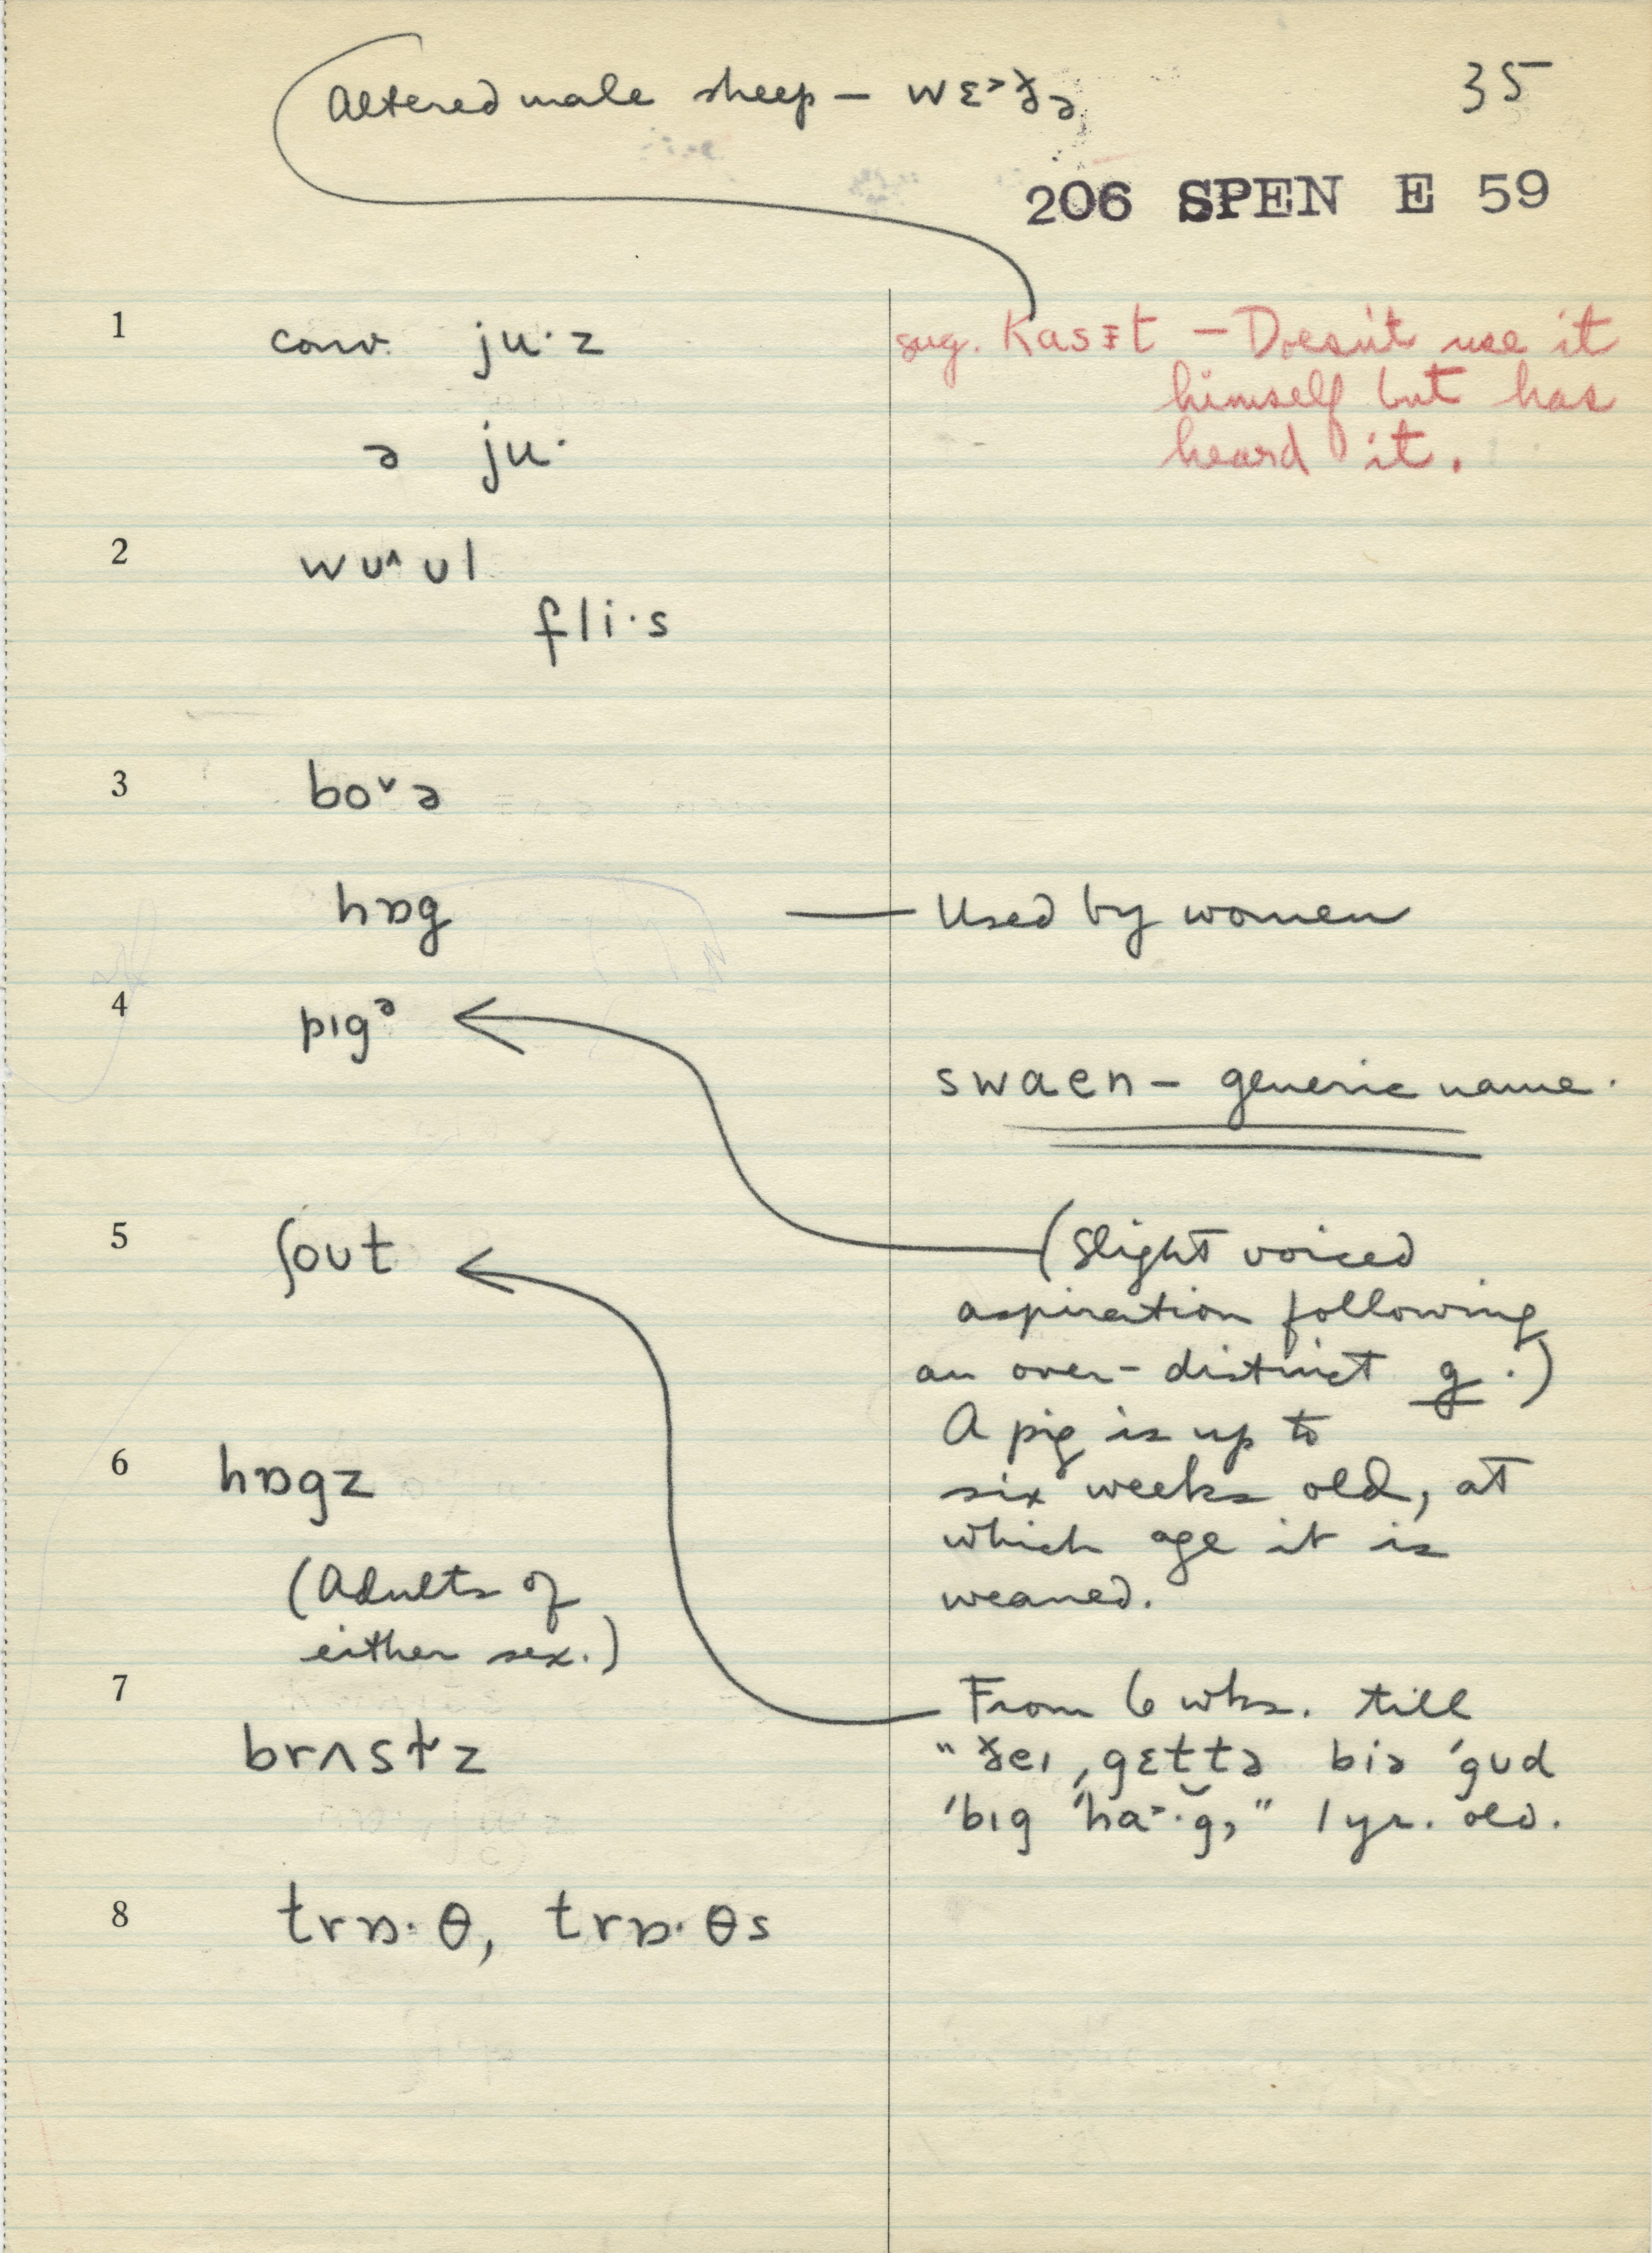 35
Altered male sheep – wɛ˃ðə
206 SPEN E 59
1 conv. ju·z
sug. Kasɨt – Doesn't use it
himself but has
heard it.
ə ju·
2 wʊ^ʊl
fli·s
3 boˇə
hɒg — Used by women
4 pɪgᵊ
swaen – generic name.
5 ʃoʊt
(slight voiced
aspiration following
an over-distinct g.)
A pig is up to
six weeks old, at
which age it is
weaned.
6 hɒgz
(Adults of
either sex.)
7 brʌstz
From 6 wks. till
"ðeɪ ˌgɛttə biə ˈgʊd
ˈbɪg ˈha˃·g̬," 1 yr. old.
8 trɒ·θ, trɒ·θs